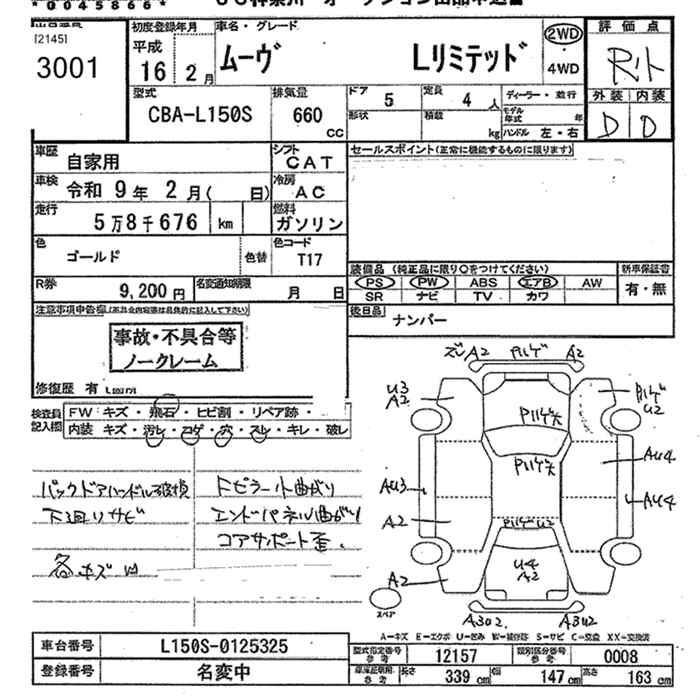 *0045866*
[2145]
3001
初度登録年月
平成
16年 2月
車名・グレード
ムーヴ Lリミテッド
2WD
・
4WD
評価点
R小
外装 内装
D D
型式
CBA-L150S
排気量
660
CC
ドア
5
定員
4人
形状
積載
kg
ディーラー・並行
モデル年式 年
ハンドル 左・右
車歴
自家用
シフト
CAT
セールスポイント(正常に機能するものに限ります)
車検
令和 9年 2月( 日)
冷房
AC
走行
5万8千676 km
燃料
ガソリン
色
ゴールド
色替
色コード
T17
装備品 (純正品に限り○をつけてください)
PS PW ABS エアB AW
SR ナビ TV カワ
新車保証書
有・無
R券
9,200円
名変通知期限
月 日
後日品
ナンバー
事故・不具合等
ノークレーム
修復歴 有
検査員
記入欄
FW キズ・飛石・ヒビ割・リペア跡・
内装 キズ・汚レ・コゲ・穴・スレ・キレ・破レ
バックドアハンドル破損
下廻りサビ
各キズ凹
下ピラー小曲がり
エンドパネル曲がり
コアサポート歪.
ズレA2 A2
U3
A2
U2
AU3
AU4
AU4
A2
U2
U4
A2
A2
スペア
A3U2 A3U2
A-キズ E-エクボ U-凹み W-補修跡 S-サビ C-腐蝕 XX-交換済
車台番号
L150S-0125325
型式指定番号
参考
12157
類別区分番号
参考
0008
登録番号
名変中
長さ 339cm
幅 147cm
高さ 163cm